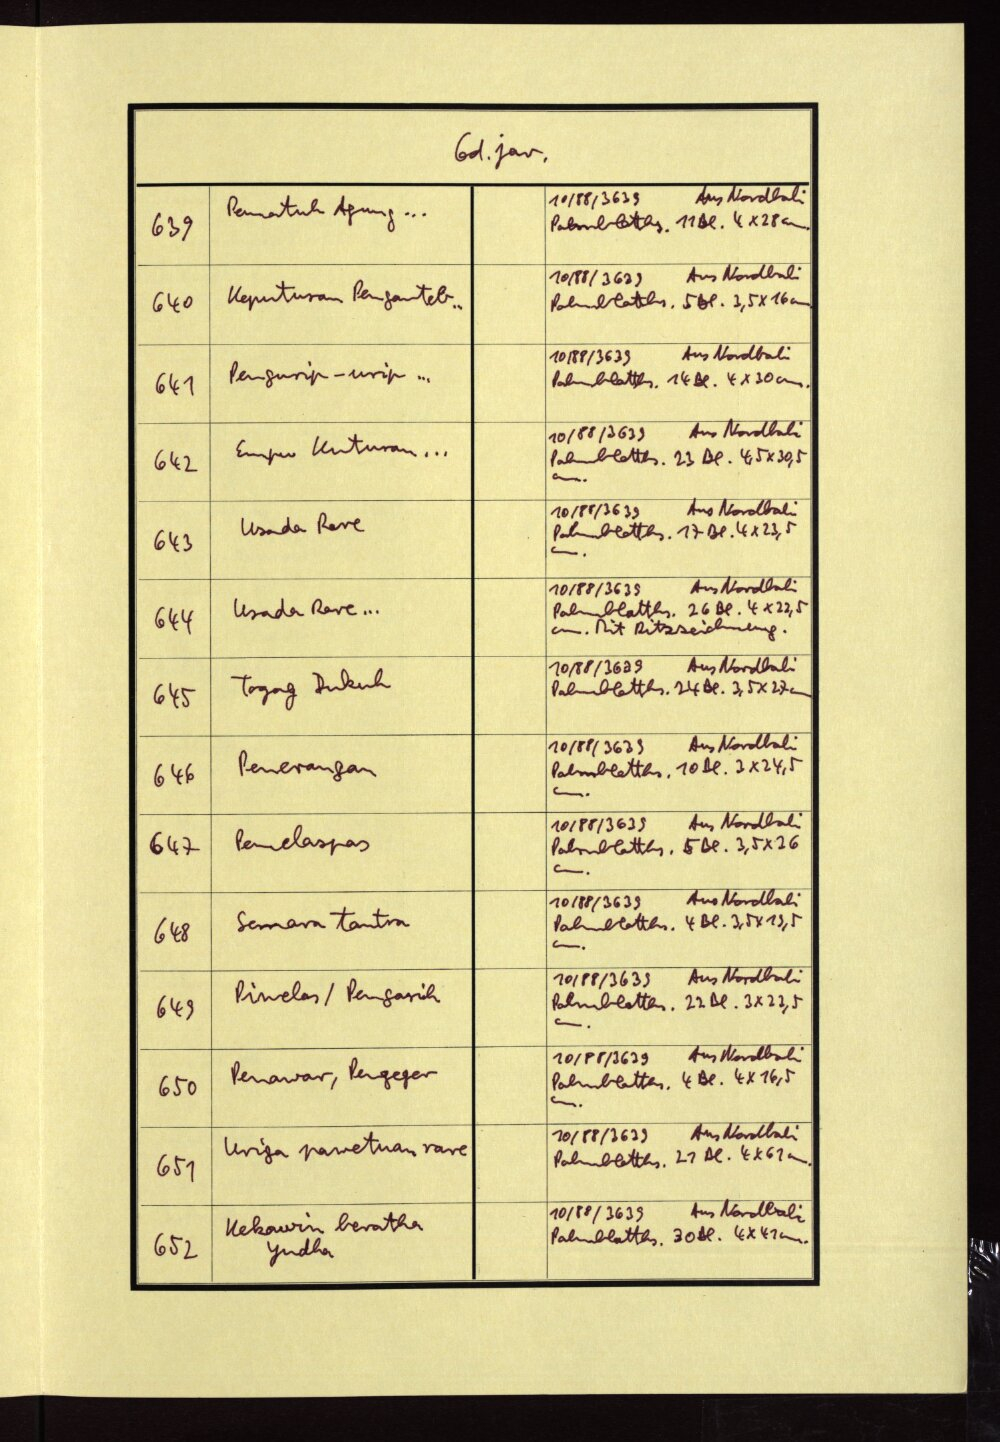 Cod. jav.
639 Pematuh Agung ... 10/88/3639 Aus Nordbali
Palmblatths. 11 Bl. 4 x 28 cm.
640 Keputusan Penganteb... 10/88/3639 Aus Nordbali
Palmblatths. 5 Bl. 3,5 x 16 cm
641 Pengurip-urip ... 10/88/3639 Aus Nordbali
Palmblatths. 14 Bl. 4 x 30 cm.
642 Empu Kuturan ... 10/88/3639 Aus Nordbali
Palmblatths. 23 Bl. 4,5 x 30,5
cm.
643 Usada Rare 10/88/3639 Aus Nordbali
Palmblatths. 17 Bl. 4 x 23,5
cm.
644 Usada Rare ... 10/88/3639 Aus Nordbali
Palmblatths. 26 Bl. 4 x 22,5
cm. Mit Ritzzeichnung.
645 Togog Dukuh 10/88/3639 Aus Nordbali
Palmblatths. 24 Bl. 3,5 x 27 cm
646 Penerangan 10/88/3639 Aus Nordbali
Palmblatths. 10 Bl. 3 x 24,5
cm.
647 Pemelaspas 10/88/3639 Aus Nordbali
Palmblatths. 5 Bl. 3,5 x 26
cm.
648 Semara tantra 10/88/3639 Aus Nordbali
Palmblatths. 4 Bl. 3,5 x 19,5
cm.
649 Piwelas / Pengasih 10/88/3639 Aus Nordbali
Palmblatths. 22 Bl. 3 x 23,5
cm.
650 Penawar, Pengeger 10/88/3639 Aus Nordbali
Palmblatths. 4 Bl. 4 x 16,5
cm.
651 Uriga pawetuan rare 10/88/3639 Aus Nordbali
Palmblatths. 21 Bl. 4 x 61 cm.
652 Kekawin beratha 10/88/3639 Aus Nordbali
Yudha Palmblatths. 30 Bl. 4 x 41 cm.